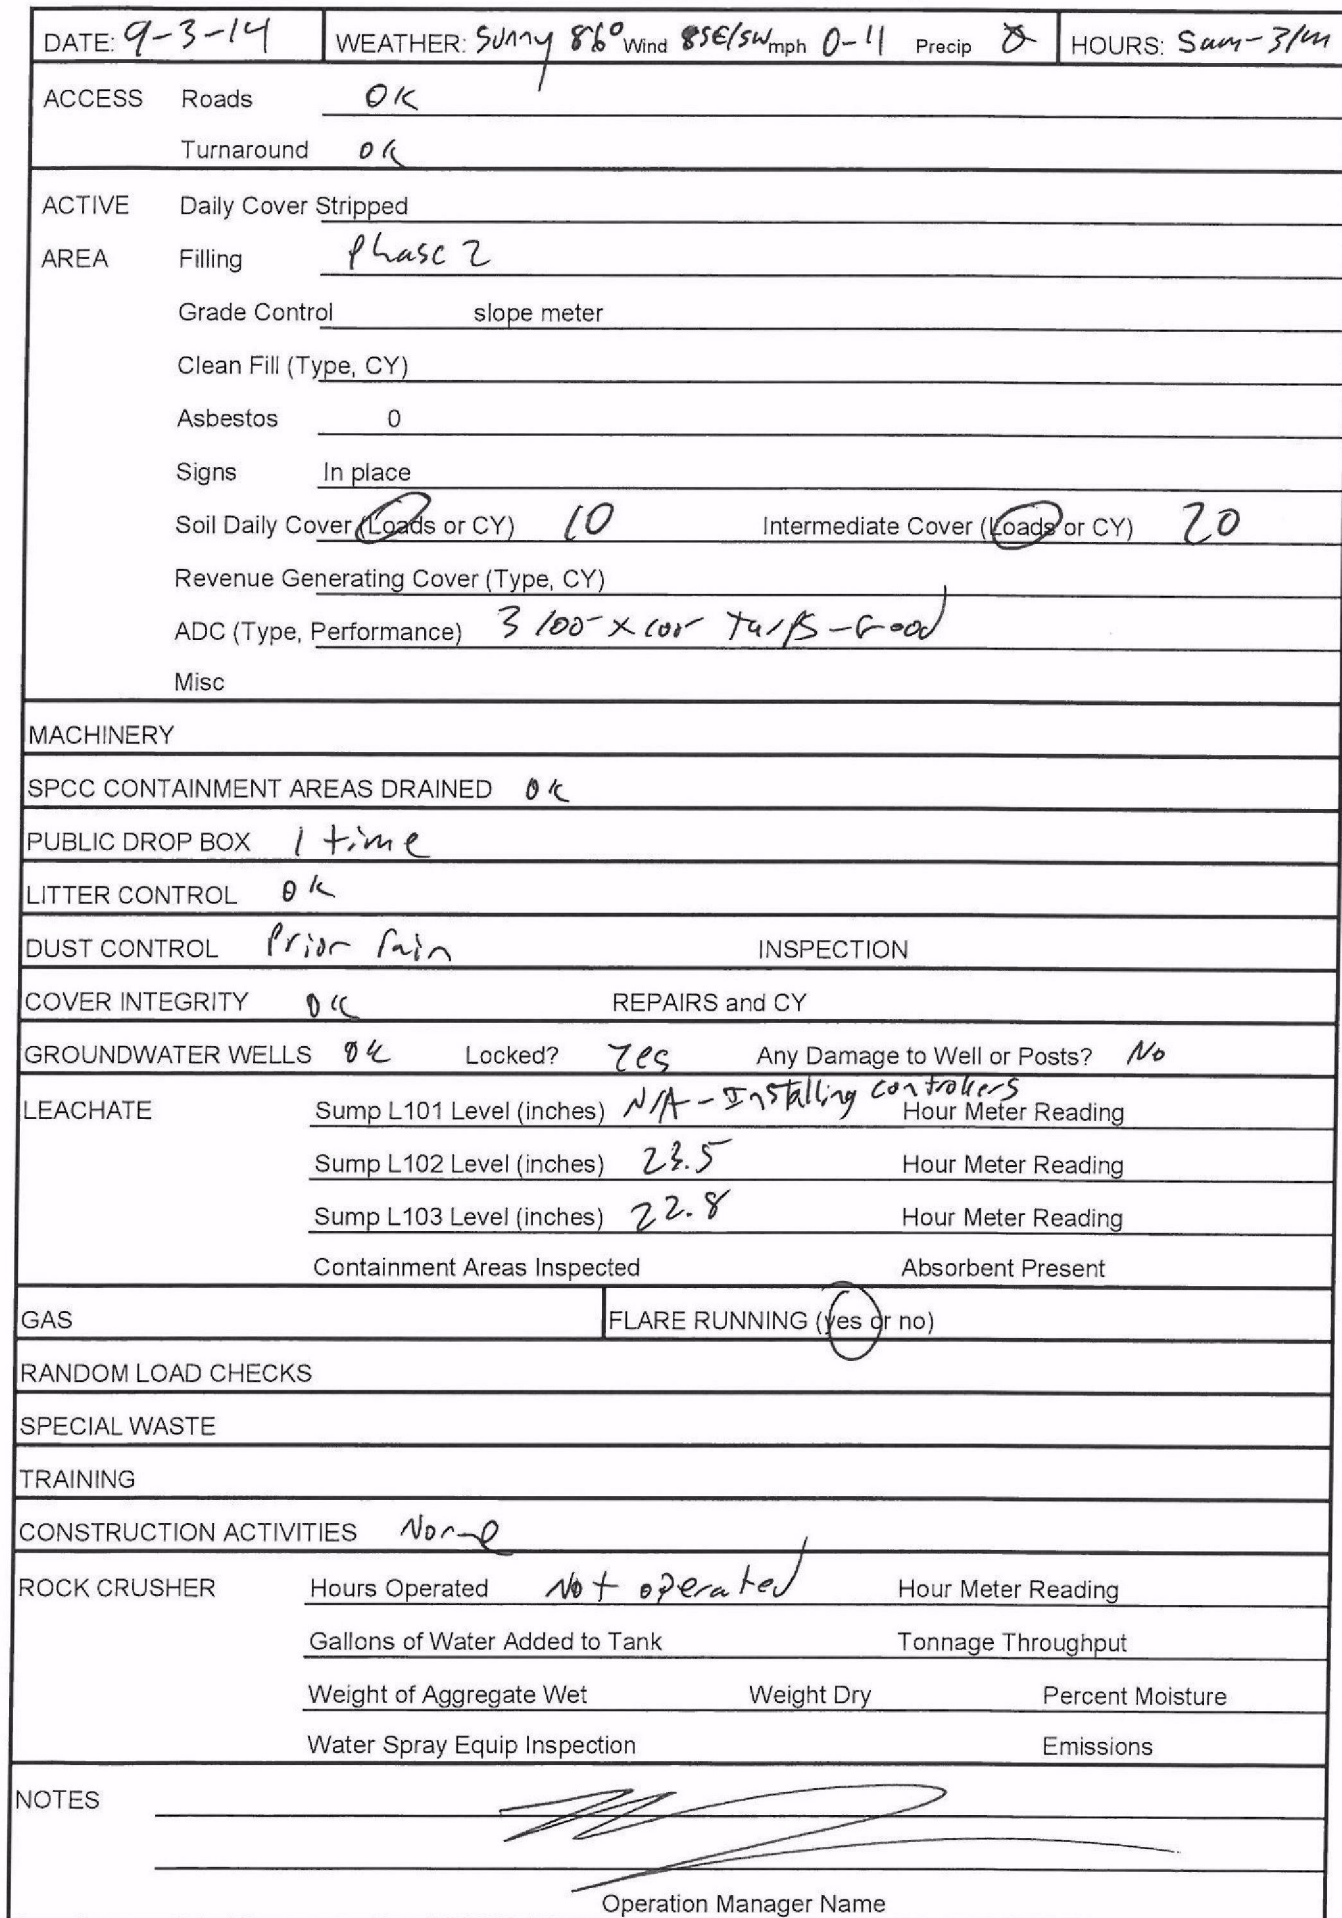 DATE: 9-3-14 WEATHER: Sunny 86° Wind SE/SW mph 0-11 Precip HOURS: 5am-3pm
ACCESS Roads OK
Turnaround OK
ACTIVE Daily Cover Stripped
AREA Filling Phase 2
Grade Control slope meter
Clean Fill (Type, CY)
Asbestos 0
Signs In place
Soil Daily Cover (Loads or CY) 10 Intermediate Cover (Loads or CY) 20
Revenue Generating Cover (Type, CY)
ADC (Type, Performance) 3 100 x 100 Tarps - Good
Misc
MACHINERY
SPCC CONTAINMENT AREAS DRAINED OK
PUBLIC DROP BOX 1 time
LITTER CONTROL OK
DUST CONTROL Prior rain INSPECTION
COVER INTEGRITY OK REPAIRS and CY
GROUNDWATER WELLS OK Locked? Yes Any Damage to Well or Posts? No
LEACHATE Sump L101 Level (inches) N/A - Installing controllers Hour Meter Reading
Sump L102 Level (inches) 23.5 Hour Meter Reading
Sump L103 Level (inches) 22.8 Hour Meter Reading
Containment Areas Inspected Absorbent Present
GAS FLARE RUNNING (yes or no)
RANDOM LOAD CHECKS
SPECIAL WASTE
TRAINING
CONSTRUCTION ACTIVITIES None
ROCK CRUSHER Hours Operated Not operated Hour Meter Reading
Gallons of Water Added to Tank Tonnage Throughput
Weight of Aggregate Wet Weight Dry Percent Moisture
Water Spray Equip Inspection Emissions
NOTES
Operation Manager Name